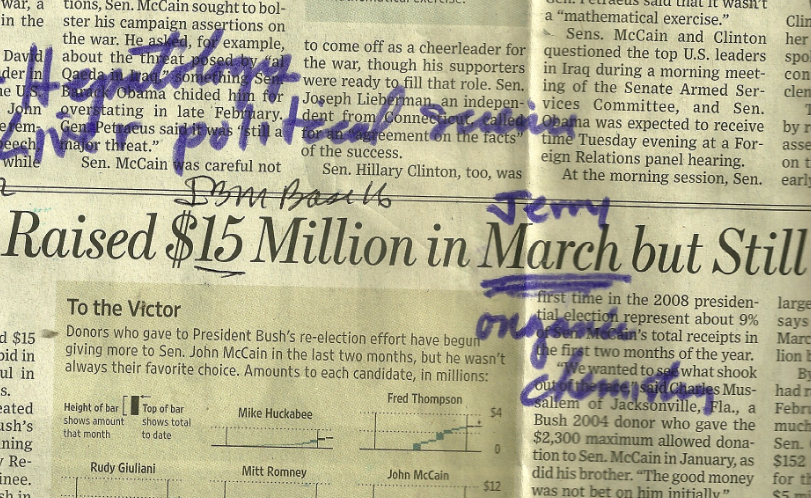 war, a
in the
David
der in
e U.S.
John
e fem-
peech,
while
tions, Sen. McCain sought to bol-
ster his campaign assertions on
the war. He asked, for example,
about the threat posed by "al
Qaeda in Iraq," something Sen.
Barack Obama chided him for
overstating in late February.
Gen. Petraeus said it was "still a
major threat."
Sen. McCain was careful not
to come off as a cheerleader for
the war, though his supporters
were ready to fill that role. Sen.
Joseph Lieberman, an indepen-
dent from Connecticut, called
for an "agreement on the facts"
of the success.
Sen. Hillary Clinton, too, was
Gen. Petraeus said that it wasn't
a "mathematical exercise."
Sens. McCain and Clinton
questioned the top U.S. leaders
in Iraq during a morning meet-
ing of the Senate Armed Ser-
vices Committee, and Sen.
Obama was expected to receive
time Tuesday evening at a For-
eign Relations panel hearing.
At the morning session, Sen.
political
Jerry
Raised $15 Million in March but Still
organic
chemistry
To the Victor
Donors who gave to President Bush's re-election effort have begun
giving more to Sen. John McCain in the last two months, but he wasn't
always their favorite choice. Amounts to each candidate, in millions:
Height of bar
shows amount
that month
Top of bar
shows total
to date
Mike Huckabee
Fred Thompson
$4
0
Rudy Giuliani
Mitt Romney
John McCain
$12
first time in the 2008 presiden-
tial election represent about 9%
of Sen. McCain's total receipts in
the first two months of the year.
"We wanted to see what shook
out of the race," said Charles Mus-
sallem of Jacksonville, Fla., a
Bush 2004 donor who gave the
$2,300 maximum allowed dona-
tion to Sen. McCain in January, as
did his brother. "The good money
was not bet on him initially."